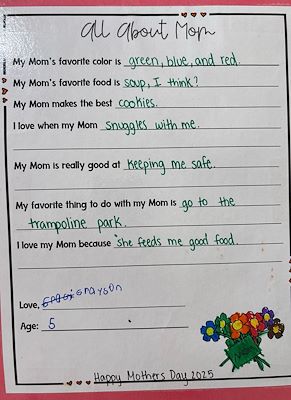 All About Mom
My Mom's favorite color is green, blue, and red.
My Mom's favorite food is soup, I think?
My Mom makes the best cookies.
I love when my Mom snuggles with me.
My Mom is really good at keeping me safe.
My favorite thing to do with my Mom is go to the
trampoline park.
I love my Mom because she feeds me good food.
Love, Grayson
Age: 5
Happy Mothers Day 2025